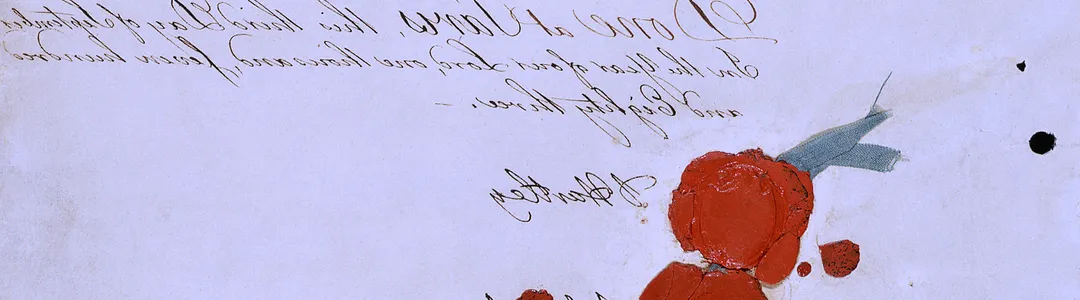 Done at Paris, this third Day of September,
In the Year of our Lord, one thousand, seven hundred
and Eighty three, –
D Hartley